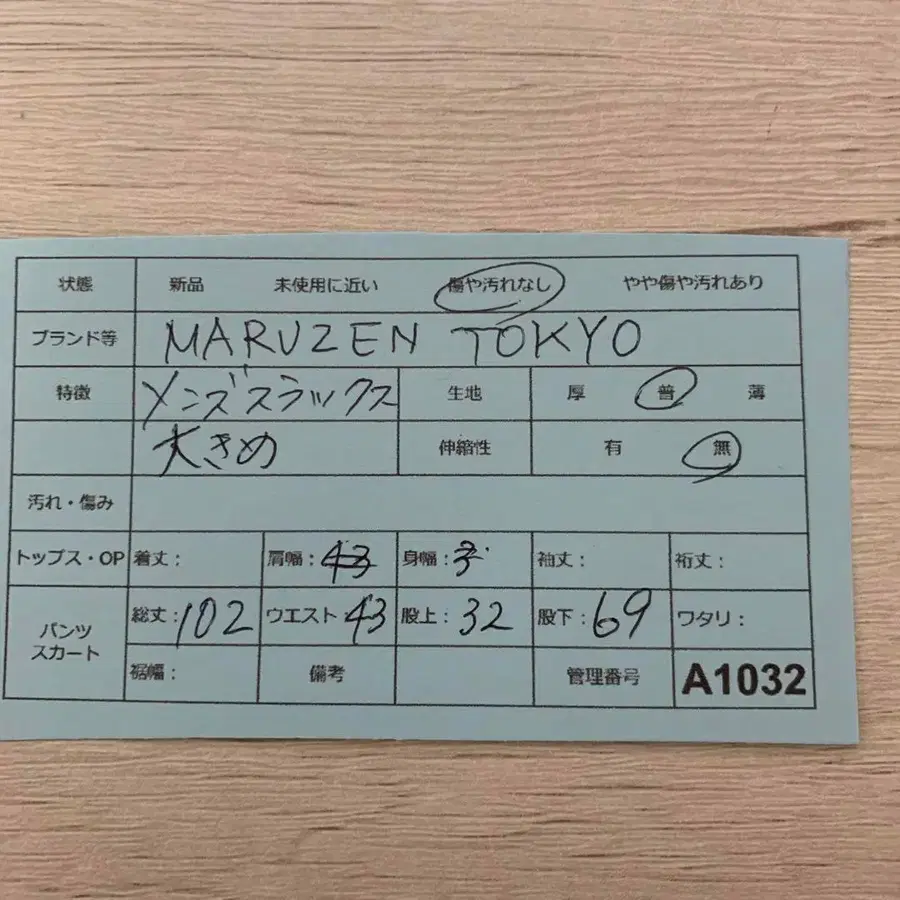 状態 新品 未使用に近い 傷や汚れなし やや傷や汚れあり
ブランド等 MARUZEN TOKYO
特徴 メンズスラックス 生地 厚 普 薄
大きめ 伸縮性 有 無
汚れ・傷み
トップス・OP 着丈: 肩幅:43 身幅:3 袖丈: 裄丈:
パンツ スカート 総丈:102 ウエスト:43 股上:32 股下:69 ワタリ:
裾幅: 備考 管理番号 A1032